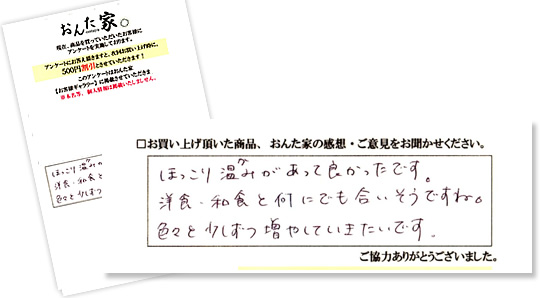 おんた家。
現在、商品を買っていただいたお客様に
アンケートを実施しております。
アンケートにお答え頂きますと、次回お買い上げ時に、
500円割引とさせていただきます！
このアンケートはおんた家
【お客様ギャラリー】に掲載させていただきま
※お名前、個人情報は掲載いたしません。
ほっこり温みが
洋食・和食と
色々と少しずつ
□お買い上げ頂いた商品、おんた家の感想・ご意見をお聞かせください。
ほっこり温みがあって良かったです。
洋食・和食と何にでも合いそうですね。
色々と少しずつ増やしていきたいです。
ご協力ありがとうございました。